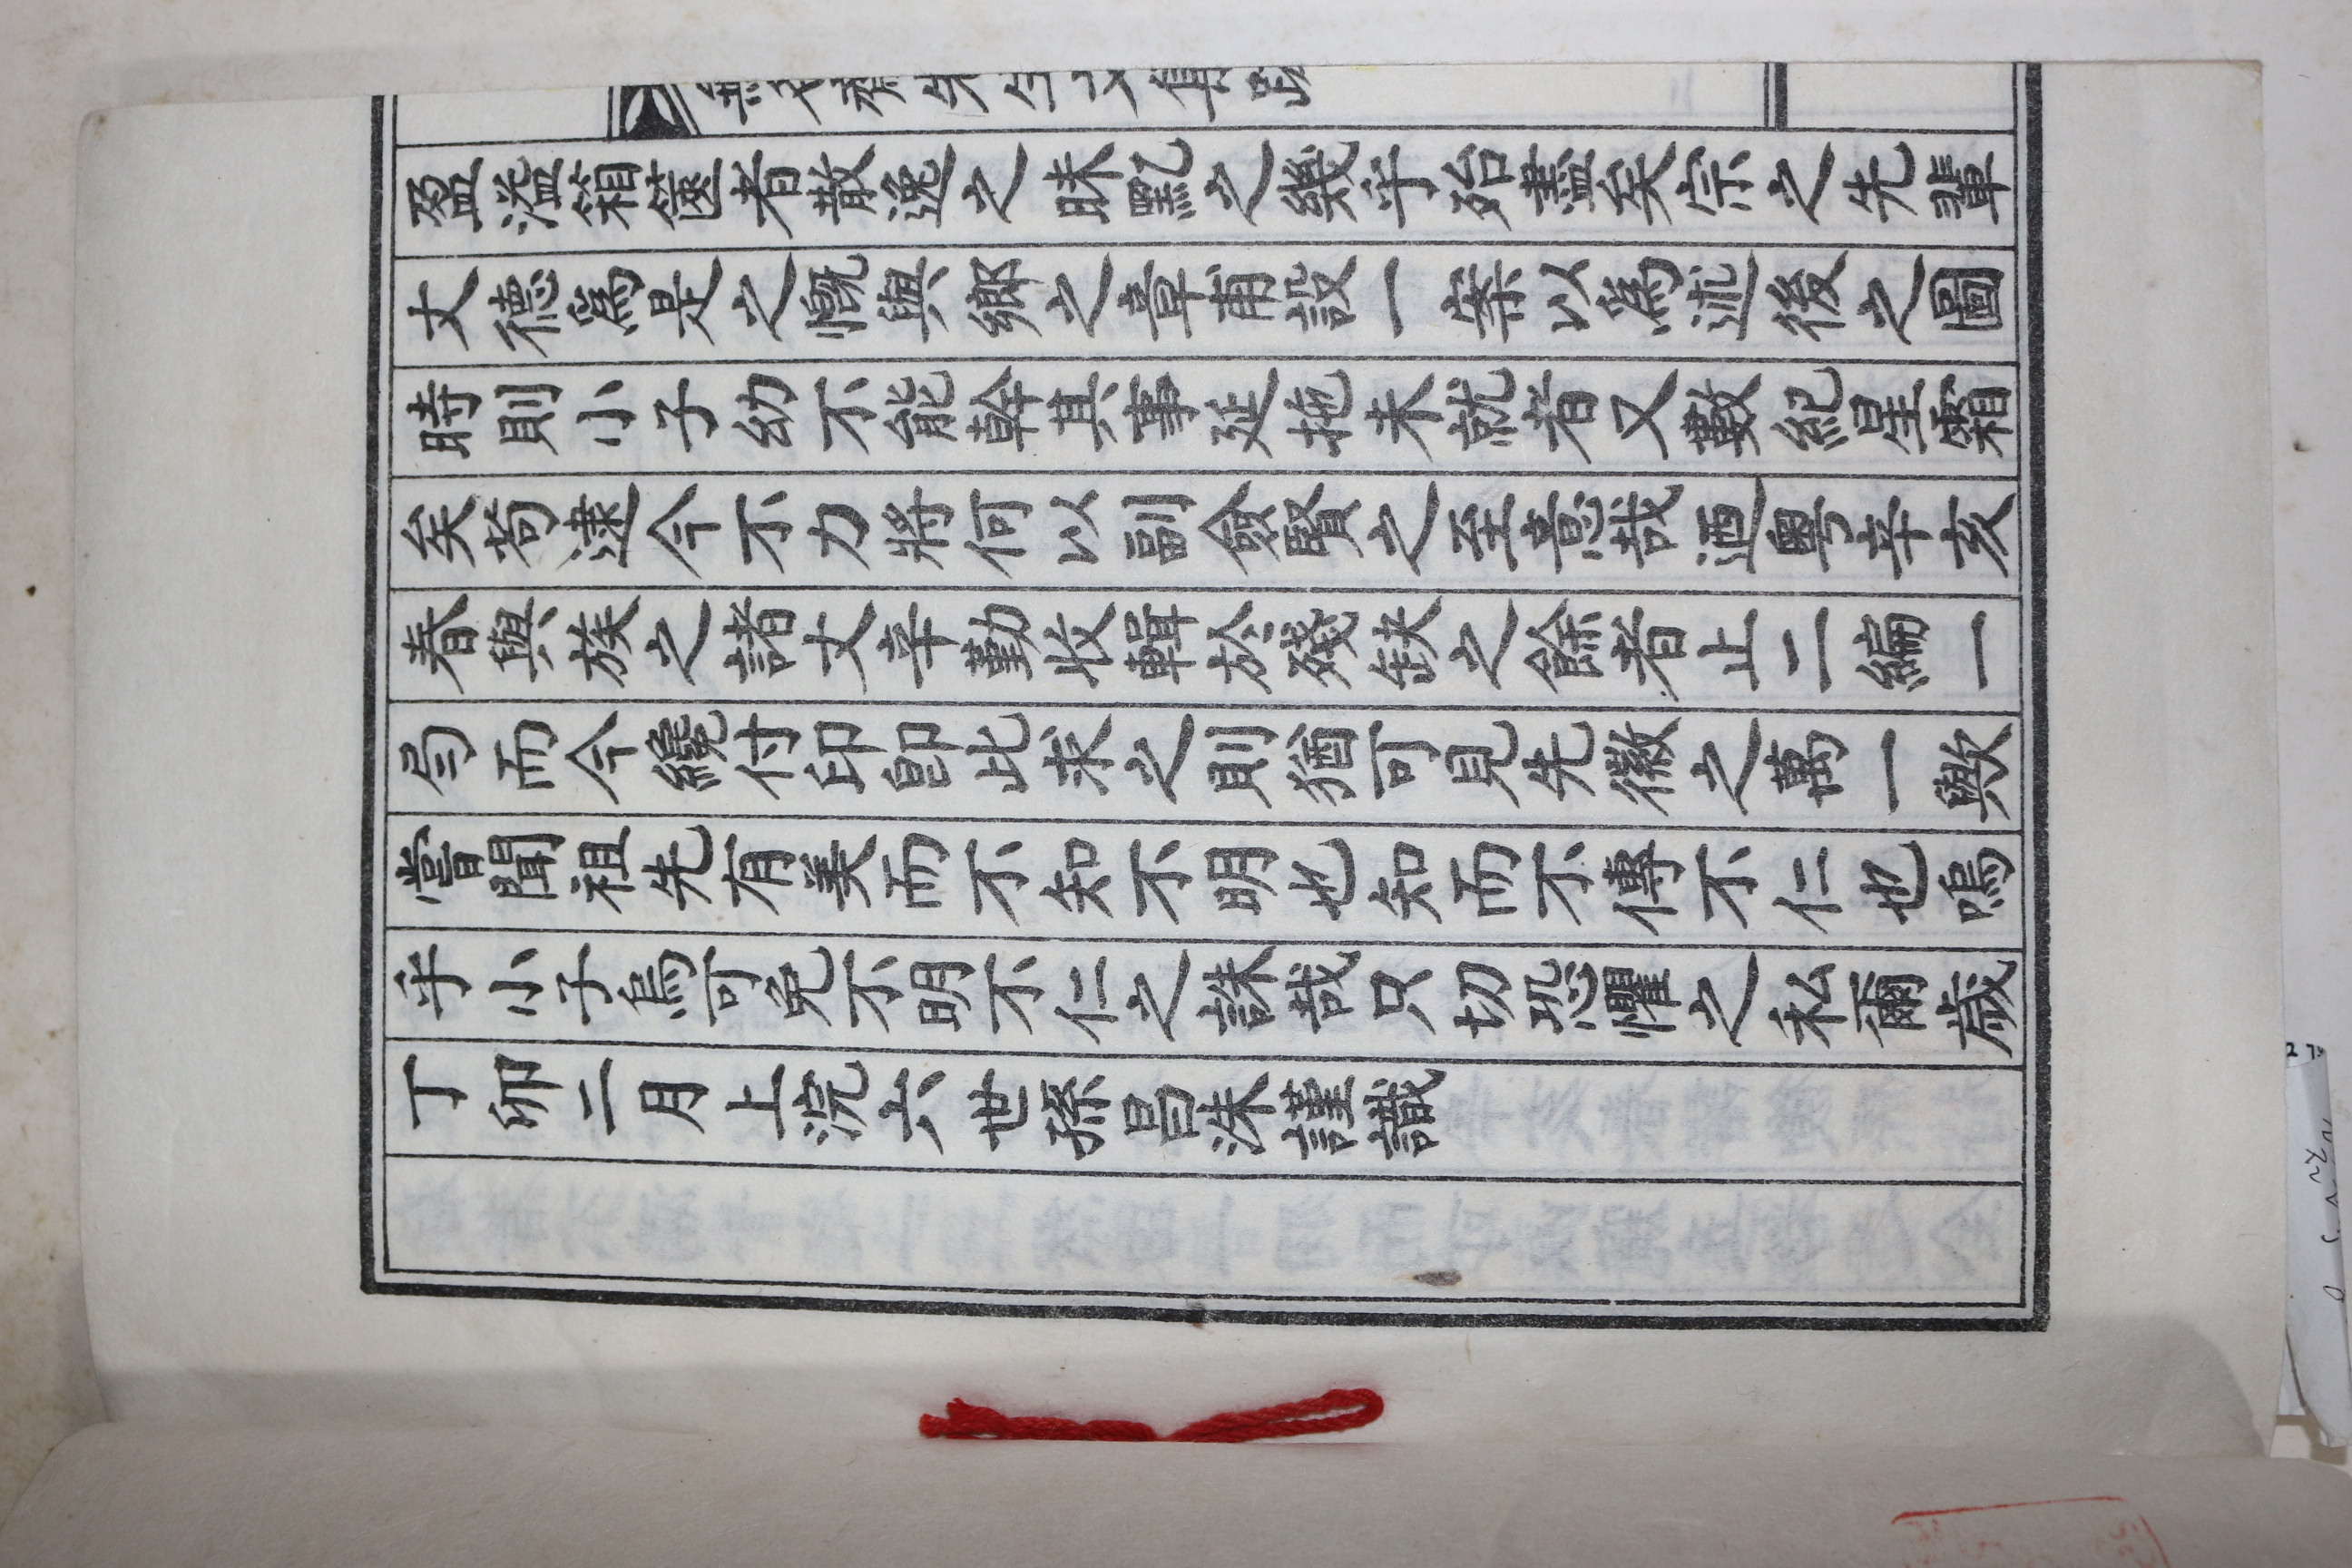 盈溢箱篋者散逸之昧黑之幾乎殆盡矣宗之先輩
丈德爲是之慨與鄕之章甫設一案以爲述後之圖
時則小子幼不能幹其事延拖未就者又數紀星霜
矣苟逮今不力將何以副僉賢之至意哉迺粤辛亥
春與族之諸丈辛勤收輯於殘缺之餘者止二編一
弓而今纔付印卽比來之則猶可見先徽之萬一歟
嘗聞祖先有美而不知不明也知而不傳不仁也嗚
乎小子烏可免不明不仁之誅哉只切恐懼之私爾歲
丁卯二月上浣六世孫昌洙謹識